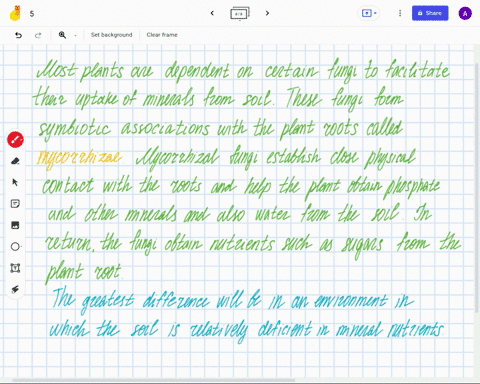 5
4/4
Share
A
Set background
Clear frame
Most plants are dependent on certain fungi to facilitate
their uptake of minerals from soil. These fungi form
symbiotic associations with the plant roots called
mycorrhizae Mycorrhizal fungi establish close physical
contact with the roots and help the plant obtain phosphate
and other minerals and also water from the soil. In
return, the fungi obtain nutrients such as sugars from the
plant root
The greatest difference will be in an environment in
which the soil is relatively deficient in mineral nutrients